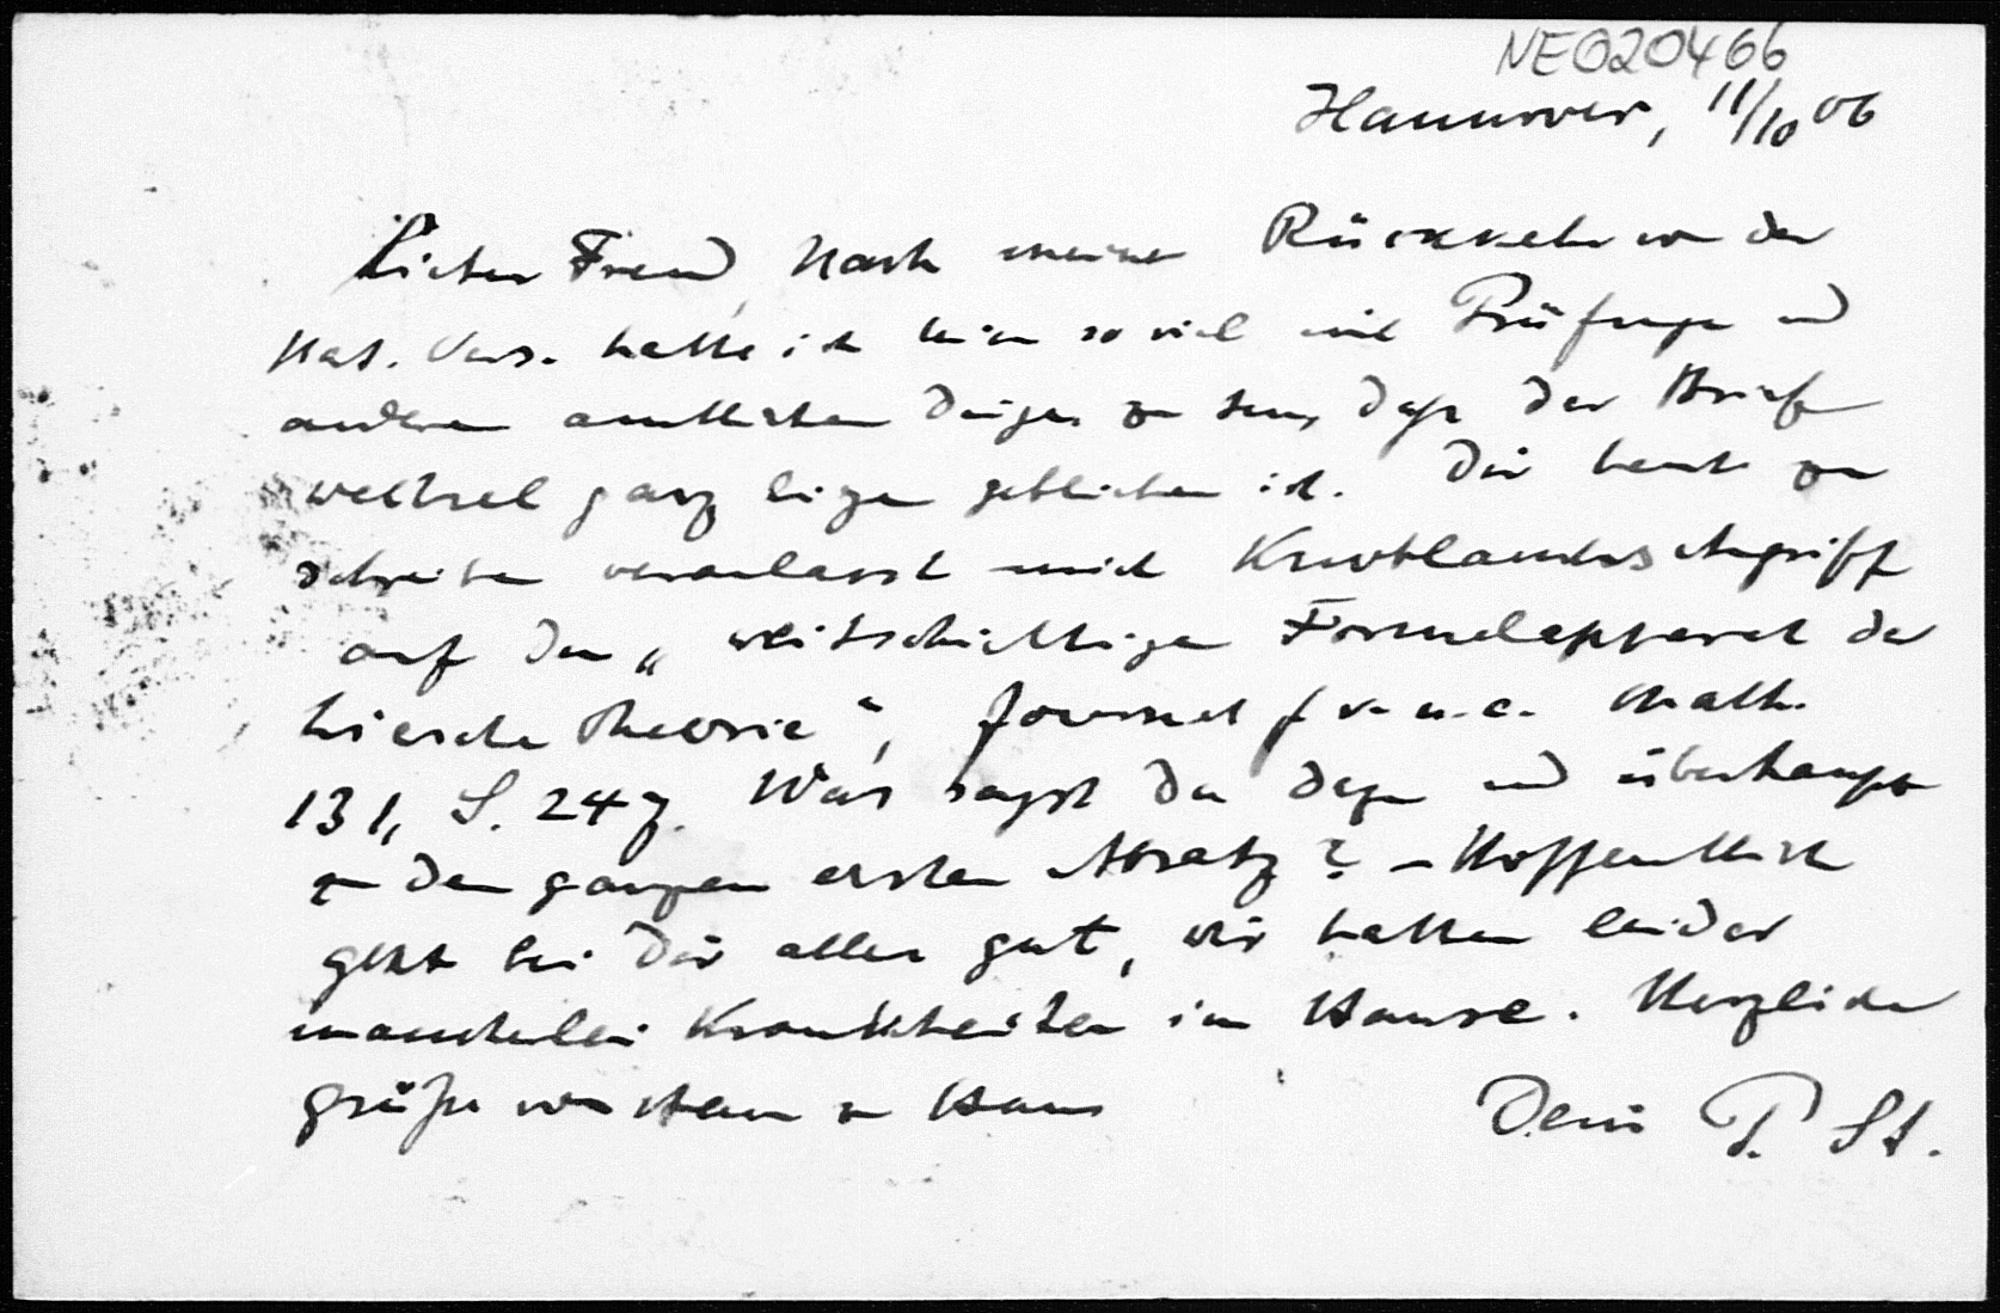 NE020466
Hannover, 11/10 06
Lieber Freund, Nach meiner Rückkehr von der
Nat. Vers. hatte ich hier so viel mit Prüfungen und
anderen amtlichen Dingen zu tun, daß der Brief
wechsel ganz liegen geblieben ist. Dir heute zu
schreiben veranlasst mich Knoblauchs Angriff
auf den „weitschichtigen Formelapparat der
Lieschen Theorie“, Journal f. r. u. a. Math.
131, S. 247. Was sagst Du dazu und überhaupt
zu dem ganzen ersten Absatz? – Hoffentlich
geht bei Dir alles gut, wir hatten leider
mancherlei Krankheiten im Hause. Herzliche
Grüße von Haus zu Haus
Dein P. St.